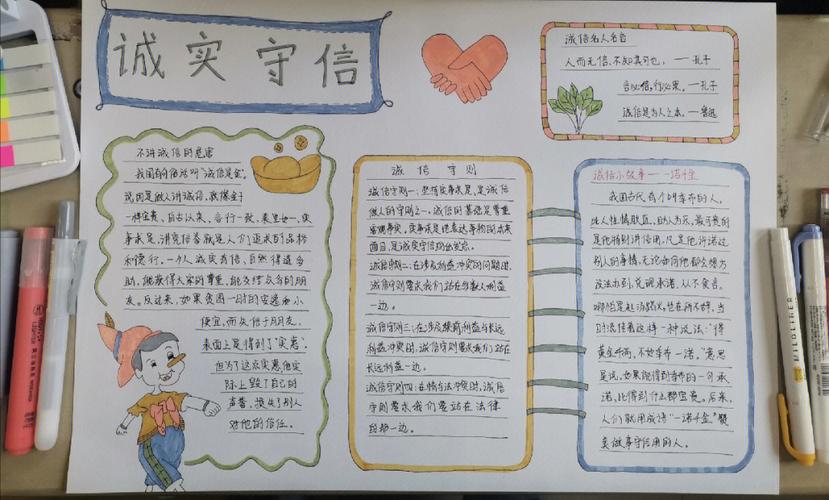 诚实守信
诚信名人名言
人而无信,不知其可也。——孔子
言必信,行必果。——孔子
诚信是为人之本。——鲁迅
不讲诚信的危害
我国有句俗话叫"诚信是金",
说的是做人讲诚信,就像金子
一样宝贵、自古以来、言行一致、表里如一、实
事求是、讲究信誉就是人们追求的品格
和德行。一个人诚实有信,自然得道多
助,能获得大家的尊重,能交结众多的朋
友。反过来,如果贪图一时的安逸和小
便宜,而失信于朋友,
表面上是得到了"实惠",
但为了这点实惠他实
际上毁了自己的
声誉,损失了别人
对他的信任。
诚信守则
诚信守则一:坚持实事求是,是诚信
做人的守则之一,诚信的基础是尊重
客观事实,实事求是地表达事物的本来
面目,是诚实守信的出发点。
诚信守则二:在涉及利益冲突的问题时,
诚信守则要求我们站在多数人利益
一边。
诚信守则三:在涉及眼前利益与长远
利益冲突时,诚信守则要求我们站在
长远利益一边。
诚信守则四:在情与法冲突时,诚信
守则要求我们要站在法律
一边。
诚信小故事——一诺千金
我国古代有个叫季布的人,
此人性情耿直,助人为乐,最可贵的
是他特别讲信用,凡是他许诺过
别人的事情,无论如何他都会想方
设法办到,兑现承诺,从不食言,
哪怕是赴汤蹈火,也在所不辞,当
时流传着这样一种说法:"得
黄金千两,不如季布一诺。"意思
是说,如果能得到季布的一句承
诺,比得到什么都宝贵。后来,
人们就用成语"一诺千金"赞
美做事守信用的人。
MILDLINER